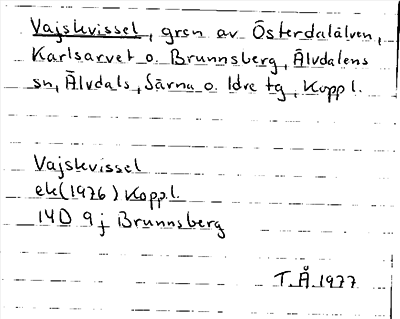 Vajskvissel, gren av Österdalälven,
Karlsarvet o. Brunnsberg, Älvdalens
sn, Älvdals, Särna o. Idre tg, Koppl.
Vajskvissel
ek (1976) Koppl.
14D 9j Brunnsberg
T.Å. 1977